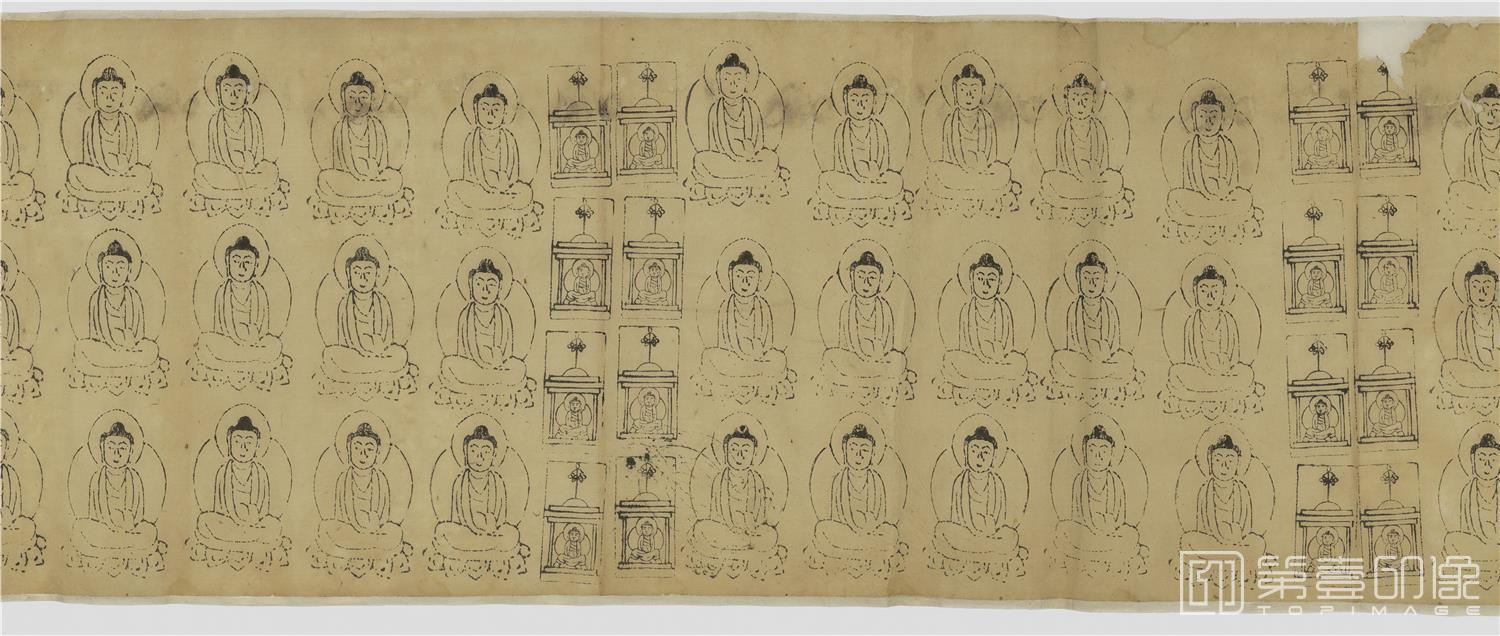 第壹印像
TOPIMAGE